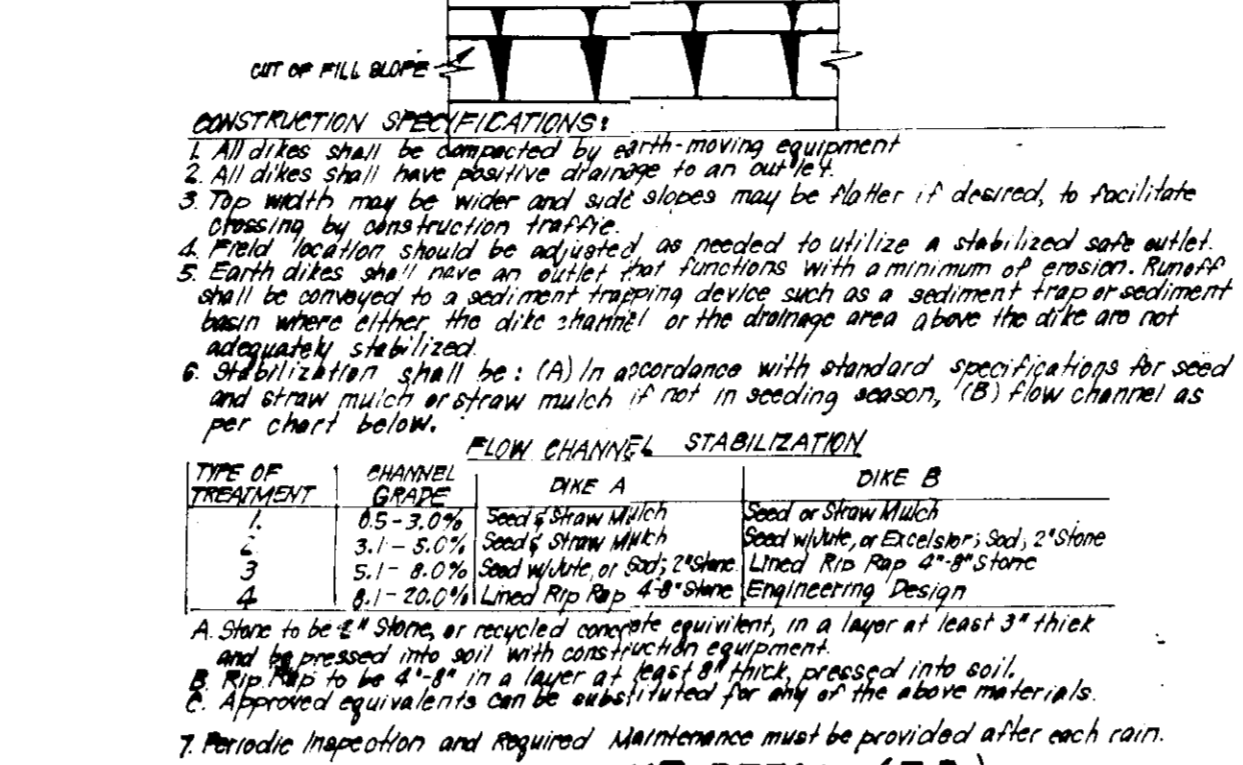 CUT OF FILL SLOPE
CONSTRUCTION SPECIFICATIONS:
1. All dikes shall be compacted by earth-moving equipment
2. All dikes shall have positive drainage to an outlet.
3. Top width may be wider and side slopes may be flatter if desired, to facilitate
crossing by construction traffic.
4. Field location should be adjusted, as needed to utilize a stabilized safe outlet.
5. Earth dikes shall have an outlet that functions with a minimum of erosion. Runoff
shall be conveyed to a sediment trapping device such as a sediment trap or sediment
basin where either the dike channel or the drainage area above the dike are not
adequately stabilized.
6. Stabilization shall be: (A) In accordance with standard specifications for seed
and straw mulch or straw mulch if not in seeding season, (B) flow channel as
per chart below.
FLOW CHANNEL STABILIZATION
TYPE OF TREATMENT CHANNEL GRADE DIKE A DIKE B
1. 0.5-3.0% Seed & Straw Mulch Seed or Straw Mulch
2. 3.1-5.0% Seed & Straw Mulch Seed w/Jute, or Excelsior; Sod; 2" Stone
3 5.1-8.0% Seed w/Jute, or Sod; 2" Stone Lined Rip Rap 4"-8" Stone
4. 8.1-20.0% Lined Rip Rap 4-8" Stone Engineering Design
A. Stone to be 2" Stone, or recycled concrete equivilent, in a layer at least 3" thick
and be pressed into soil with construction equipment.
B. Rip Rap to be 4"-8" in a layer at least 8" thick, pressed into soil.
C. Approved equivalents can be substituted for any of the above materials.
7. Periodic Inspection and Required Maintenance must be provided after each rain.